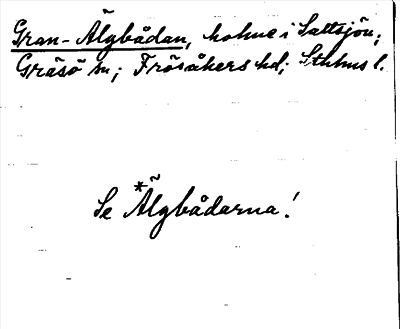 Gran-Älgbådan, holme i Saltsjön;
Gräsö sn; Frösåkers hd; Sthlms l.
Se *Älgbådarna!